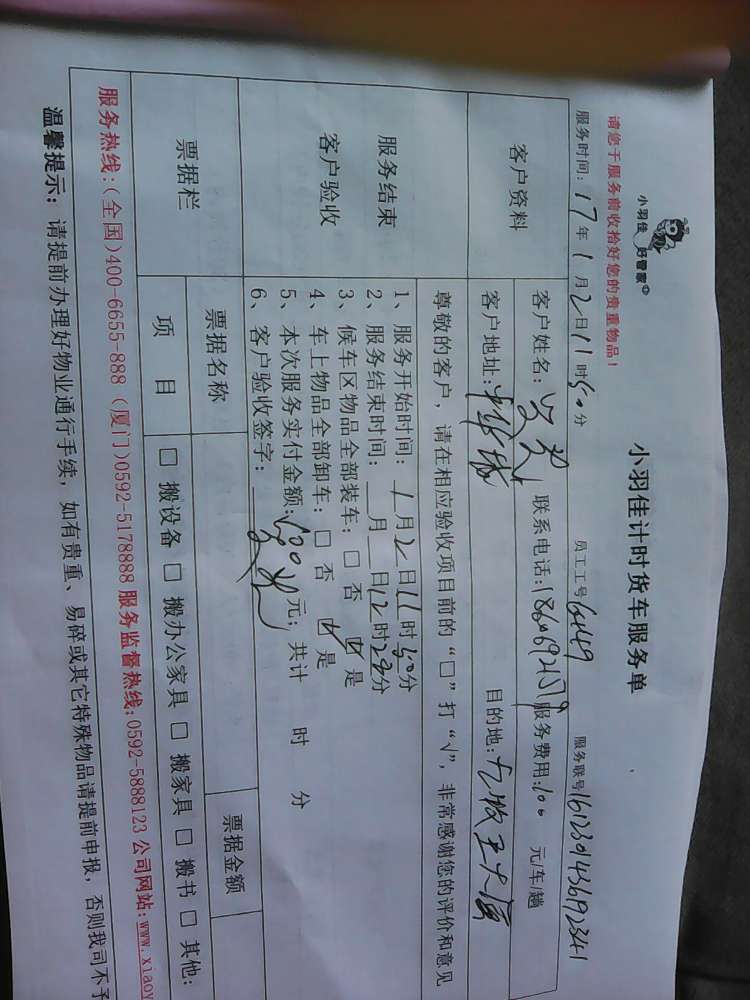 小羽佳 好管家
小羽佳计时货车服务单
请您于服务前收拾好您的贵重物品！
服务时间：17年1月2日11时50分 员工工号6449 服务联号
客户资料
客户姓名： 联系电话： 服务费用：100 元/车/趟
客户地址： 目的地：
服务结束
客户验收
尊敬的客户，请在相应验收项目前的“□”打“√”，非常感谢您的评价和意见
1、服务开始时间：1月2日11时50分
2、服务结束时间：__月__日12时22分
3、候车区物品全部装车：□ 否 ☑ 是
4、车上物品全部卸车：□ 否 ☑ 是
5、本次服务实付金额：100元；共计 时 分
6、客户验收签字：
票据栏
票据名称
票据金额
项 目
□ 搬设备 □ 搬办公家具 □ 搬家具 □ 搬书 □ 其他:
服务热线:(全国)400-6655-888 (厦门)0592-5178888 服务监督热线:0592-5888123 公司网站:www.xiaoy
温馨提示：请提前办理好物业通行手续，如有贵重、易碎或其它特殊物品请提前申报，否则我司不予